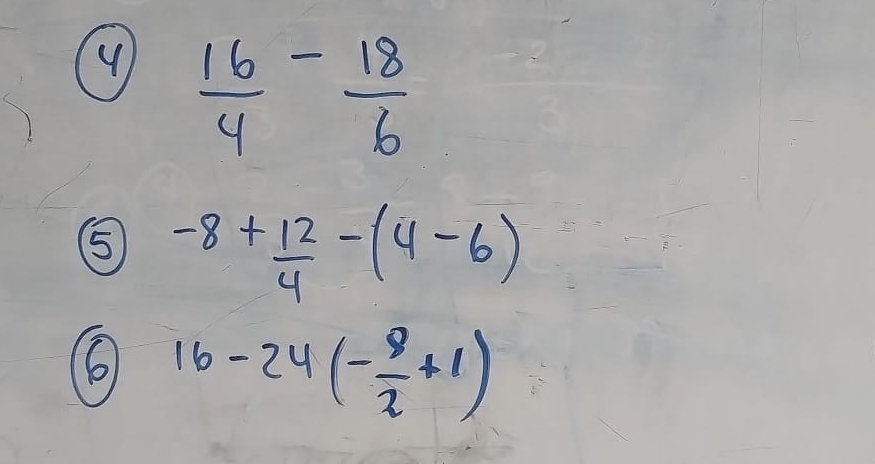 ④ 16/4 - 18/6
⑤ -8 + 12/4 - (4 - 6)
⑥ 16 - 24 (-8/2 + 1)